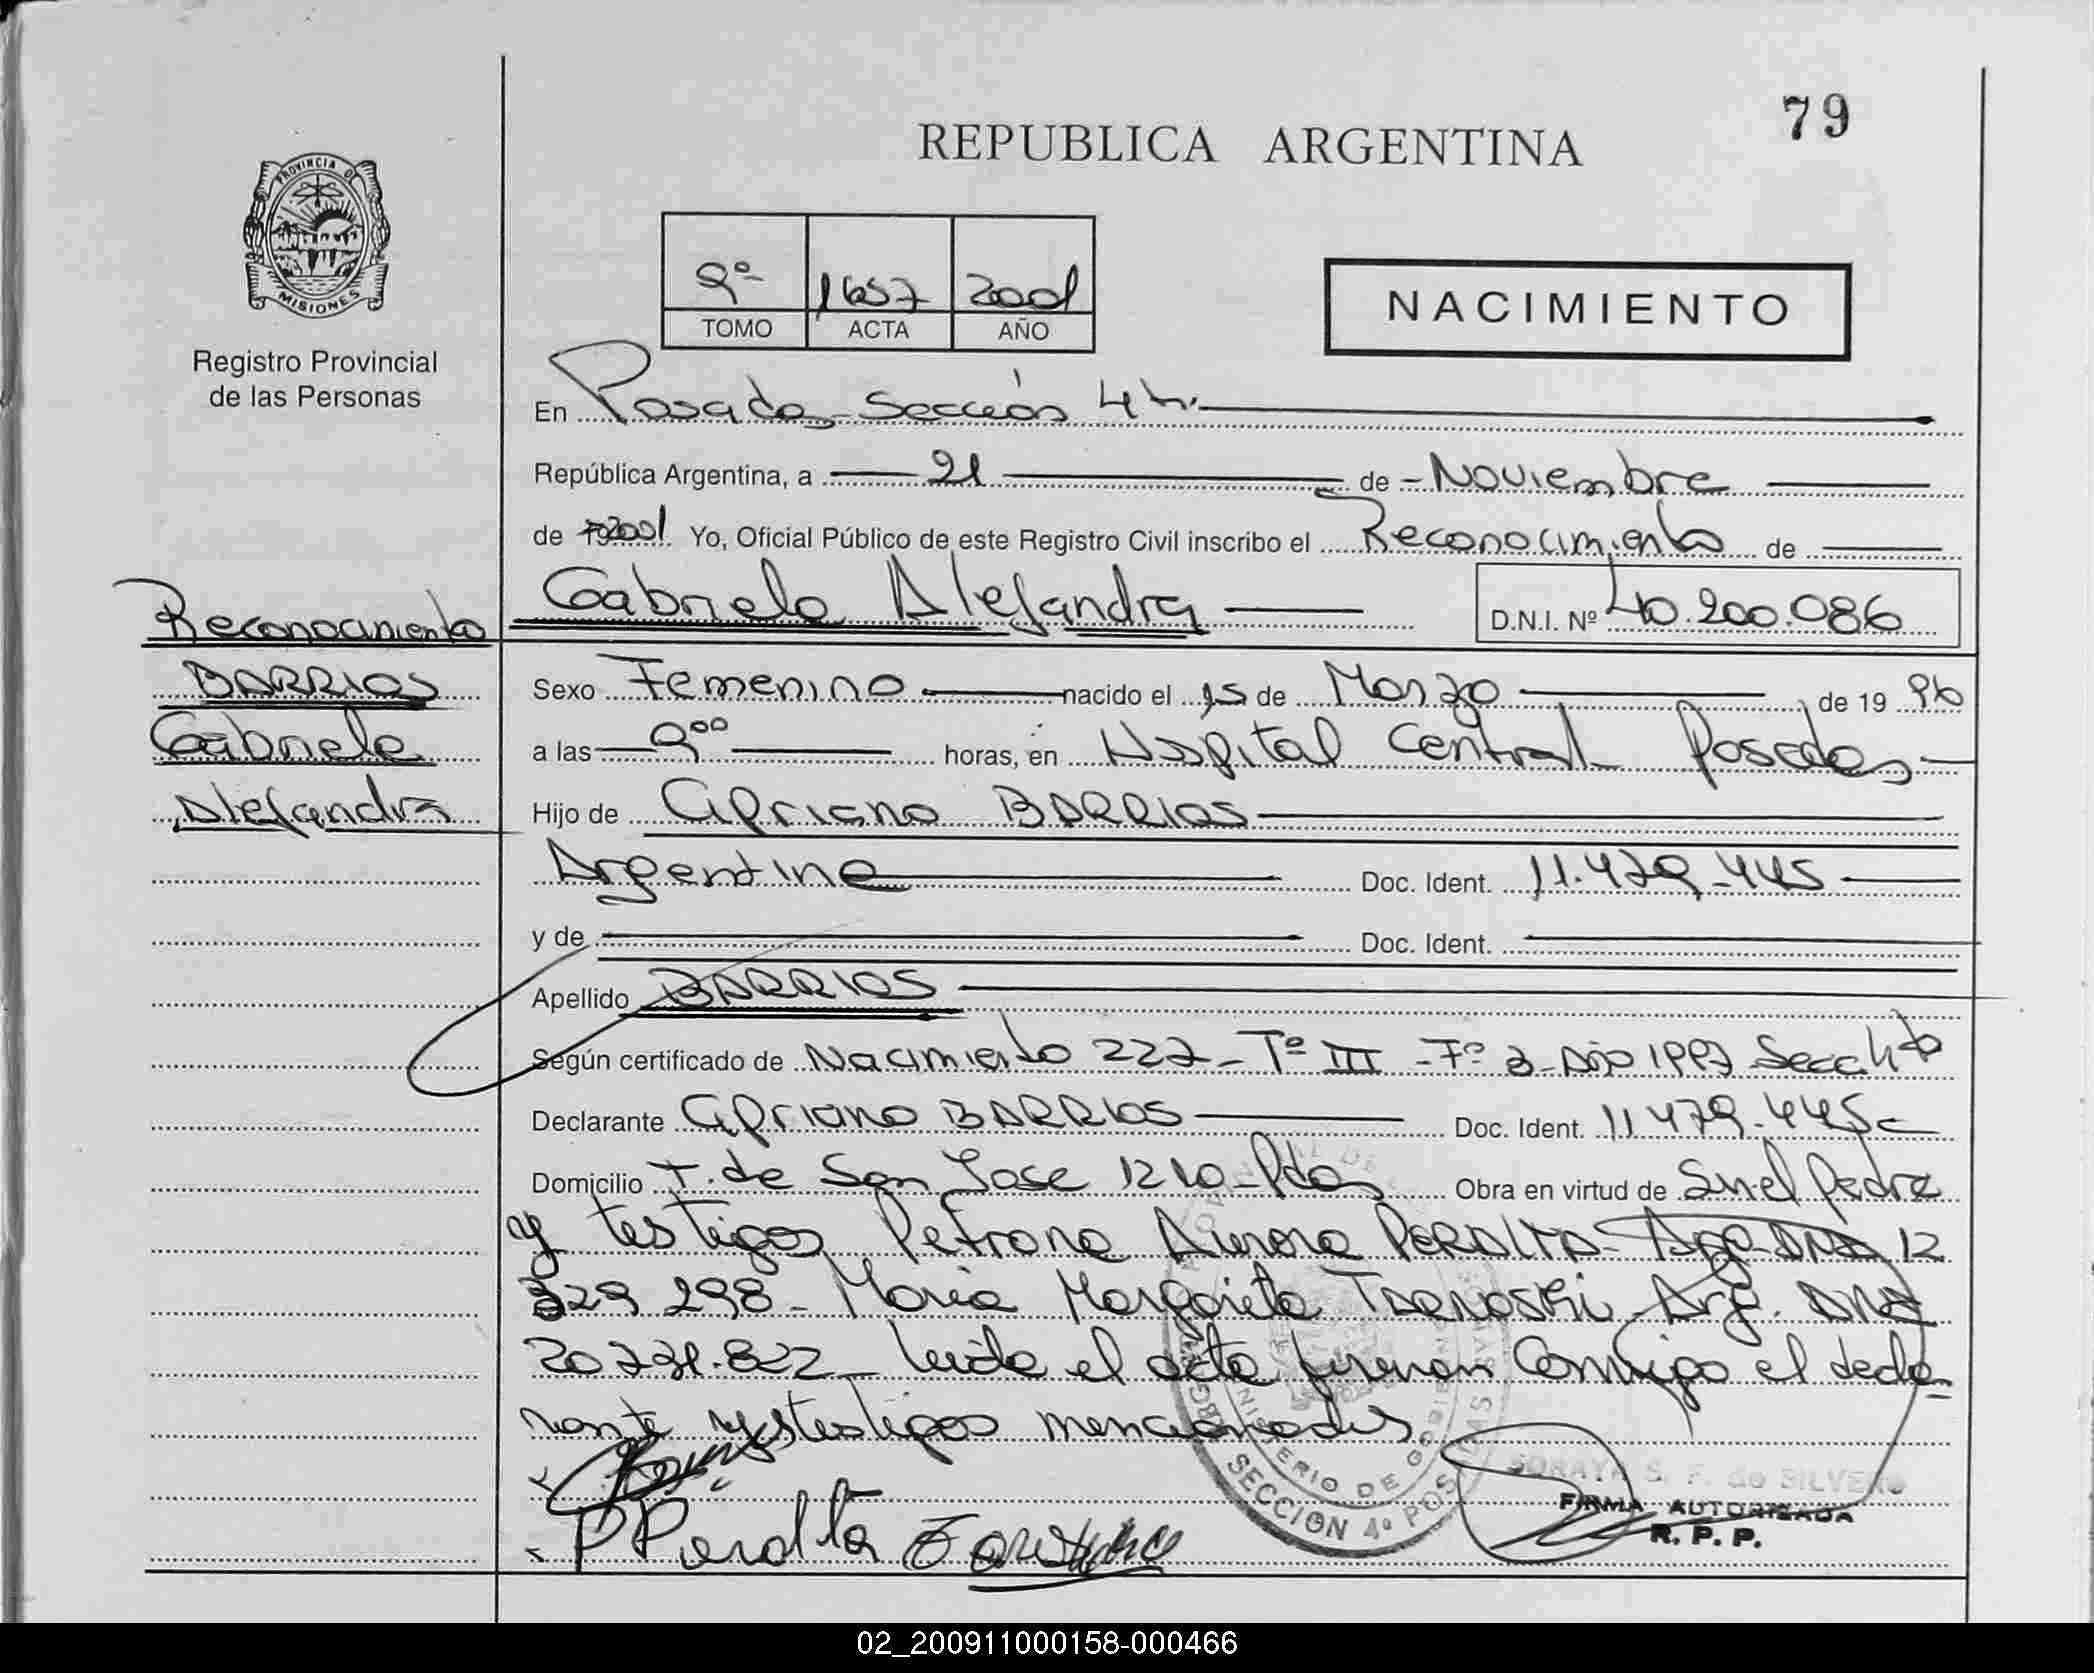 79
REPUBLICA ARGENTINA
PROVINCIA DE
MISIONES
Registro Provincial
de las Personas
9º 1657 2001
TOMO ACTA AÑO
NACIMIENTO
En Posadas Sección 4ta.
República Argentina, a 21 de Noviembre
de 2001 Yo, Oficial Público de este Registro Civil inscribo el Reconocimiento de
Gabriela Alejandra D.N.I. Nº 40.200.086
Reconocimiento
BARRIOS
Gabriela
Alejandra
Sexo Femenino nacido el 15 de Marzo de 19 96
a las 9⁰⁰ horas, en Hospital Central Posadas
Hijo de Cipriano BARRIOS
Argentino Doc. Ident. 11.479.445
y de Doc. Ident.
Apellido BARRIOS
Según certificado de Nacimiento 227 - Tº III - Fº 3 Año 1997 Secc 4ta
Declarante Cipriano BARRIOS Doc. Ident. 11 479.445
Domicilio T. de San Jose 1210 - Pdas Obra en virtud de Ser el Padre
y testigos Petrona Aurora PERALTA - Arg. DNI 12
329 298 - Maria Margarita TARNOSKI Arg. DNI
20.731.822 - leida el acta firman Conmigo el decla-
rante y testigos mencionados
PPeralta
MINISTERIO DE GOBIERNO
SECCION 4º POS
SORAYA S. F. de SILVERO
FIRMA AUTORIZADA
R. P. P.
02_200911000158-000466